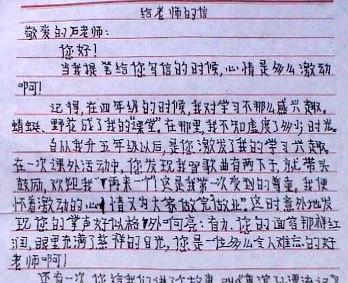 给老师的信
敬爱的石老师:
您好!
当我提笔给您写信的时候,心情是多么激动
啊!
记得,在四年级的时候,我对学习不那么感兴趣。
蜻蜓、野花成了我的“课堂”。在那里,我不知虚度了多少时光。
自从我升五年级以后,是您激发了我的学习兴趣。
在一次课外活动中,您发现我唱歌曲有两下子,就带头
鼓励,欢迎我“再来一个”这是我第一次受到的尊重,我便
怀着激动的心情又为大家做完做业”这时意外地发
现您的掌声好似格外响亮:有力,您的面容那样红
润,眼里充满了慈祥的目光,您是一位多么令人难忘的好
老师啊!
还有一次,您给我们讲了故事